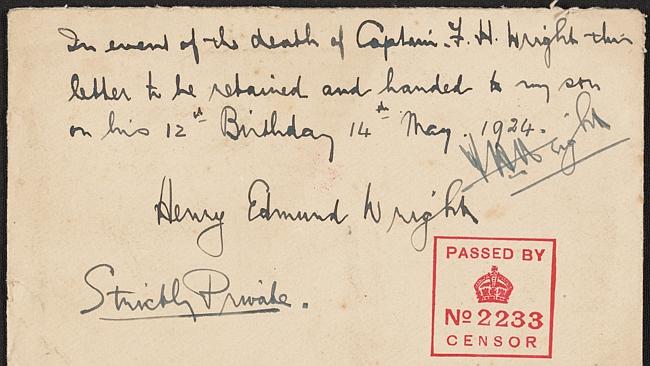 In event of the death of Captain. F. H. Wright this
letter to be retained and handed to my son
on his 12th Birthday 14th May. 1924.
FHWright
Henry Edmund Wright
Strictly Private.
PASSED BY
No 2233
CENSOR